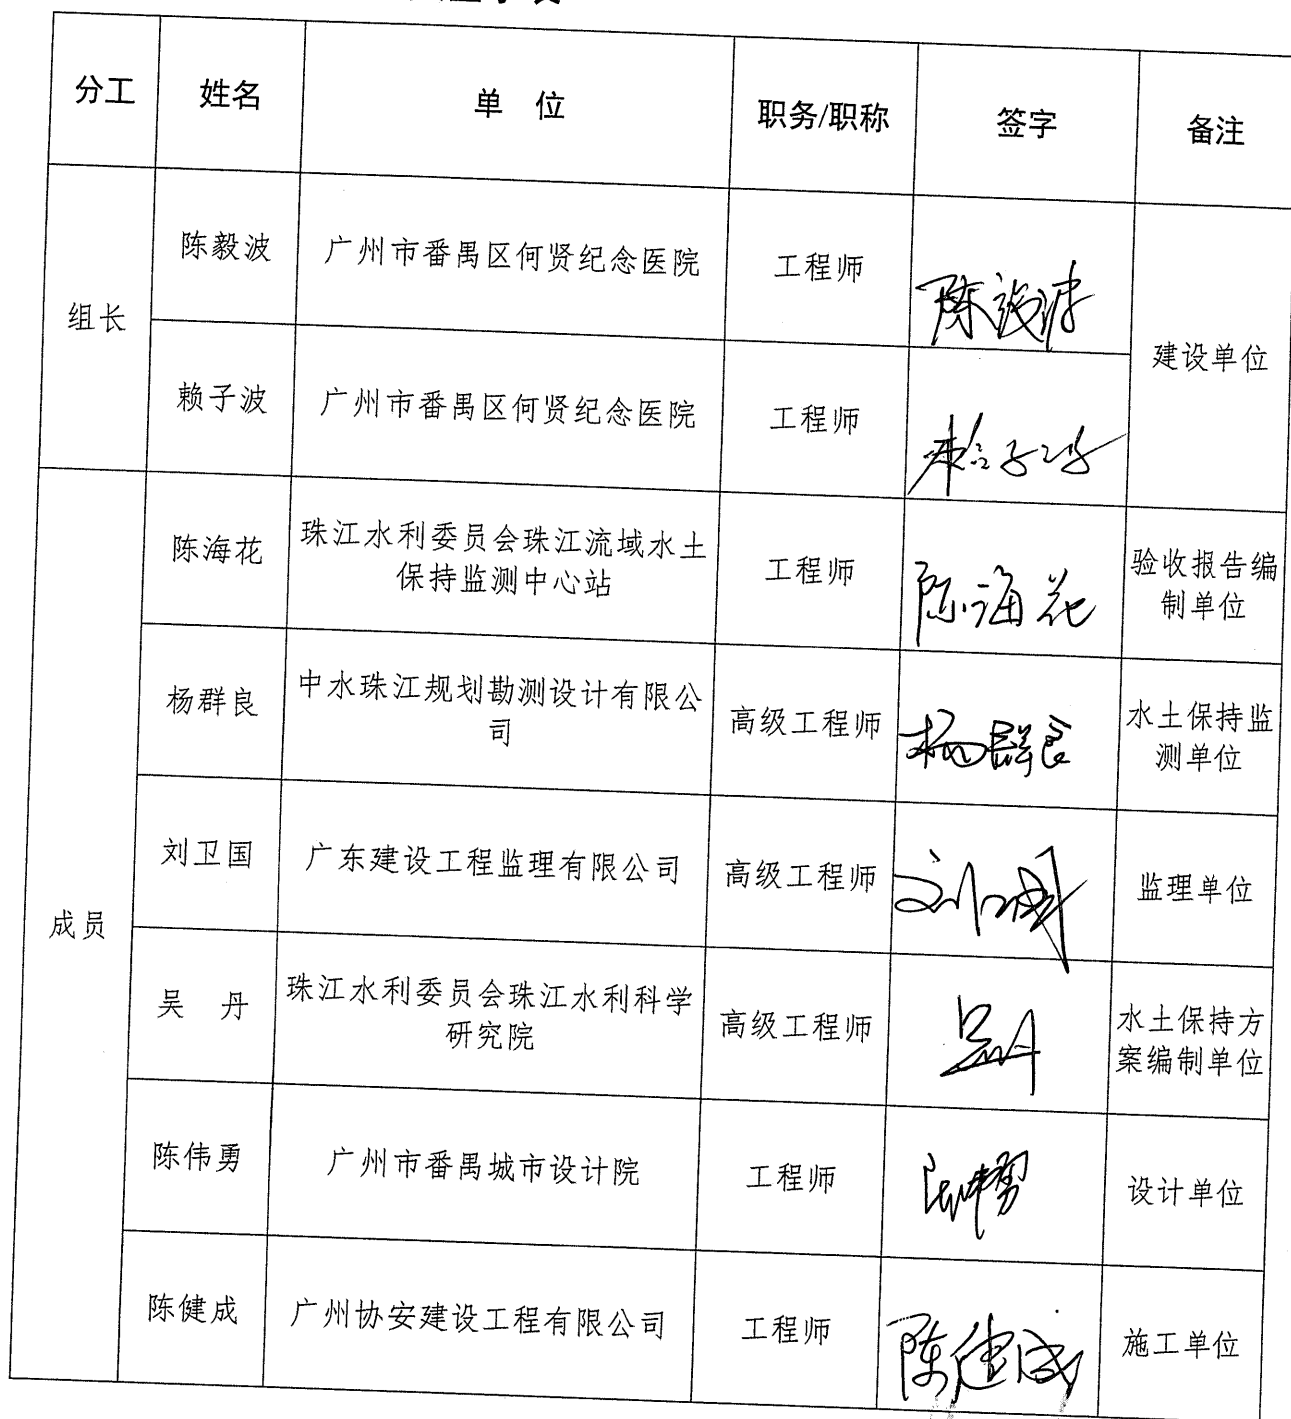 分工 姓名 单 位 职务/职称 签字 备注
组长 陈毅波 广州市番禺区何贤纪念医院 工程师 陈毅波 建设单位
赖子波 广州市番禺区何贤纪念医院 工程师 赖子波
成员 陈海花 珠江水利委员会珠江流域水土
保持监测中心站 工程师 陈海花 验收报告编
制单位
杨群良 中水珠江规划勘测设计有限公
司 高级工程师 杨群良 水土保持监
测单位
刘卫国 广东建设工程监理有限公司 高级工程师 刘卫国 监理单位
吴 丹 珠江水利委员会珠江水利科学
研究院 高级工程师 吴丹 水土保持方
案编制单位
陈伟勇 广州市番禺城市设计院 工程师 陈伟勇 设计单位
陈健成 广州协安建设工程有限公司 工程师 陈健成 施工单位